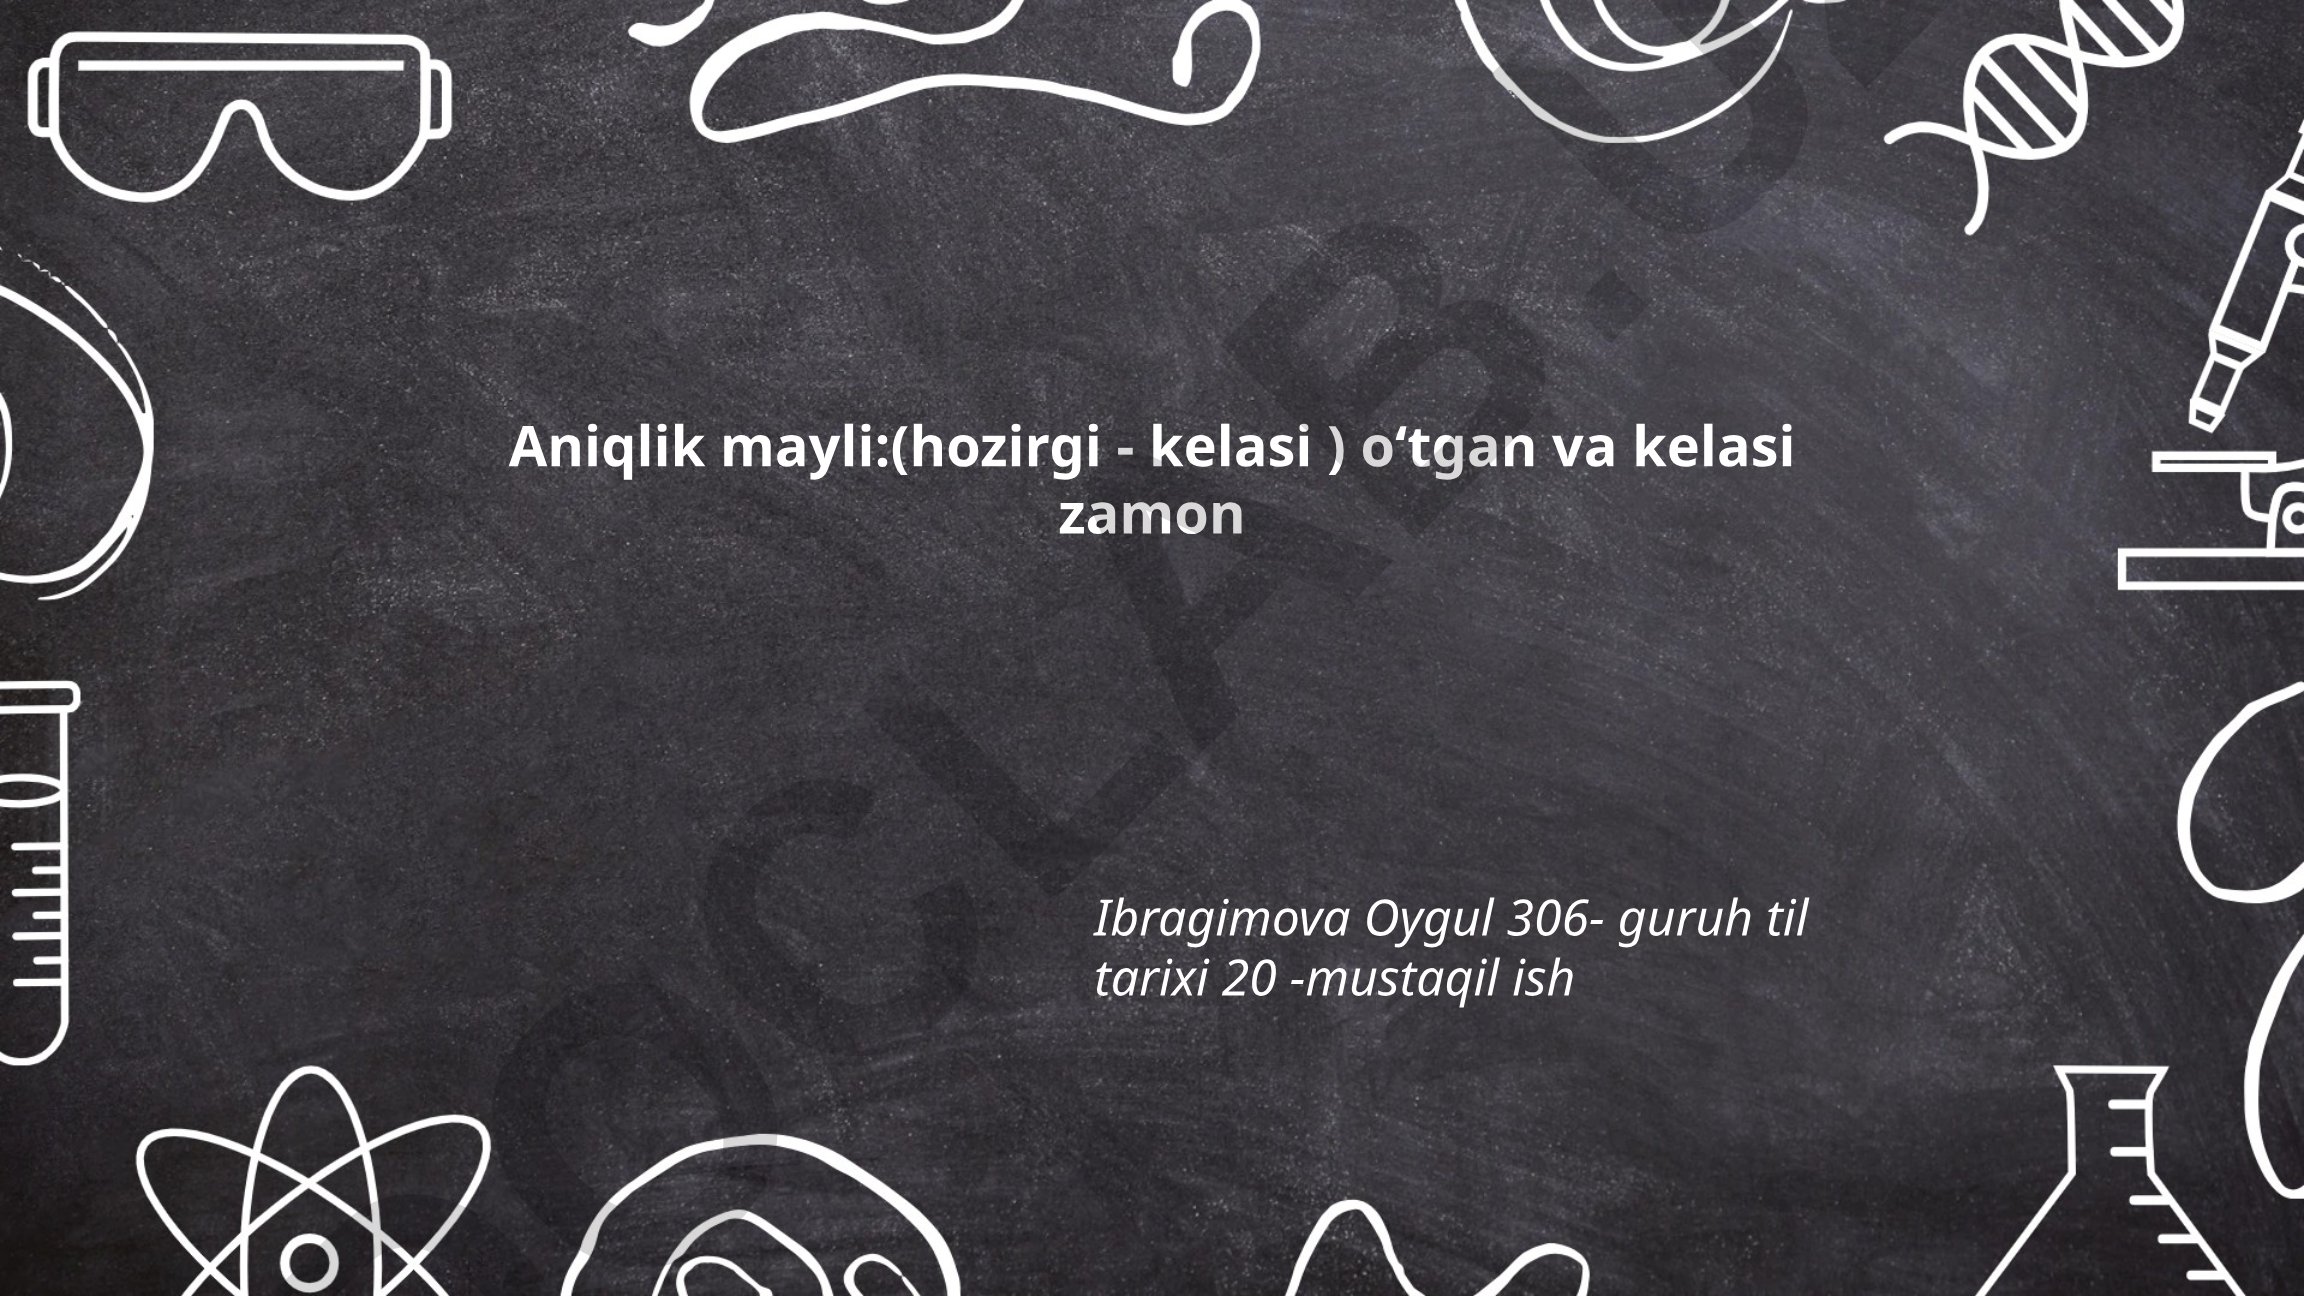 Aniqlik mayli:(hozirgi - kelasi ) o‘tgan va kelasi
zamon
Ibragimova Oygul 306- guruh til
tarixi 20 -mustaqil ish